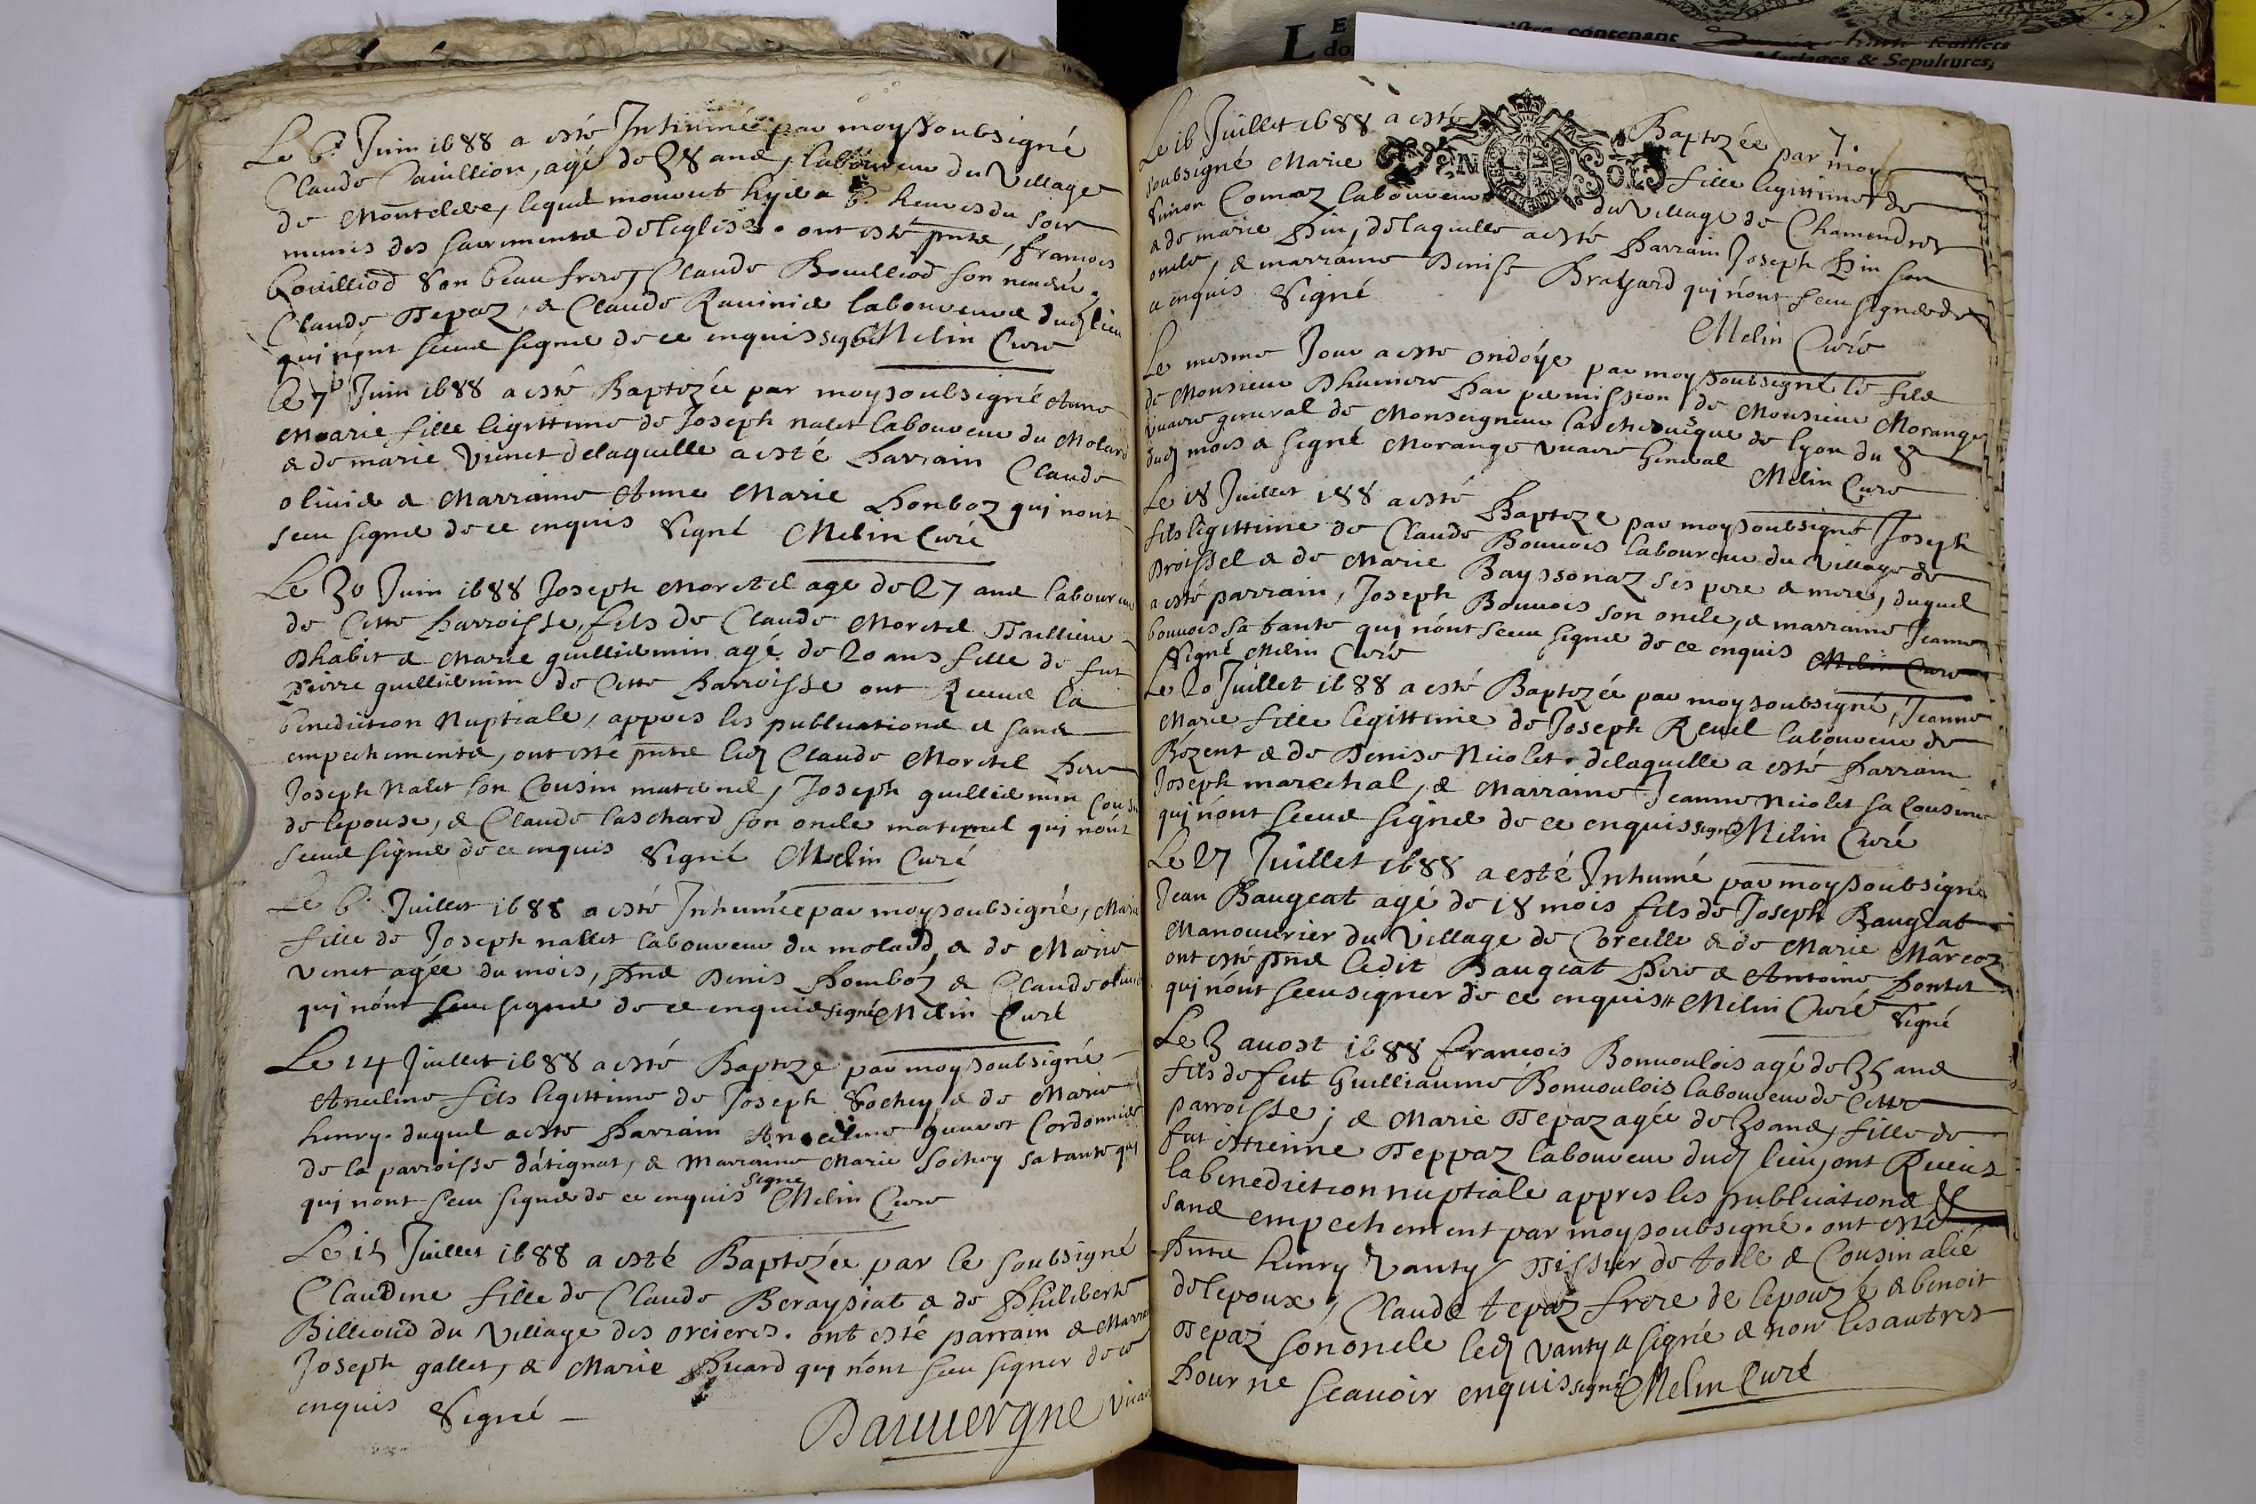 Le 6e Juin 1688 a esté Inhumé par moy soubsigné
Claude agé de 28 ans, laboureur du Village
de lequel mourut hyer a 6 heures du soir
munis des sacrements de l'eglise. ont esté pnts, francois
bouilliod son beau frere, Claude Bouilliod son neveu,
Claude Tepaz, & Claude laboureurs dud lieu
qui n'ont sceus signer de ce enquis signé Melin Curé
Le 7e Juin 1688 a esté Baptezée par moy soubsigné Anne
Marie fille legittime de Joseph nalet laboureur du Molard
& de marie Vienet delaquelle a esté Parrain Claude
olivier & Marraine Anne Marie Ponboz qui nont
sceu signer de ce enquis Signé Melin Curé
Le 30 Juin 1688 Joseph Moretel age de 27 ans laboureur
de Cette Parroisse, fils de Claude Moretel Taillieur
Dhabit & Marie guilliermin agé de 20 ans fille de fut
Pierre guilliermin de Cette Parroisse ont Receus la
benediction Nuptiale, appres les publications & sans
empechements, ont esté pnts led Claude Moretel Pere
Joseph Nalet son Cousin maternel, Joseph guilliermin Cousin
de lepouse, & Claude laschard son oncle maternel qui nont
sceus signer de ce enquis Signé Melin Curé
Le 6e Juillet 1688 a esté Inhumée par moy soubsigné, Marie
fille de Joseph nallet laboureur du molard, & de Marie
Venet agée du mois, pns Denis Pomboz & Claude olivier
qui nont sceu signer de ce enquis signé Melin Curé
Le 14 Juillet 1688 a esté Baptezé par moy soubsigné
Ancelme fils legittime de Joseph Sochey, & de Marie
henry. duquel a esté Parrain Ancelme Cordonnier
de la parroisse d'atignat, & Marraine Marie Sochey sa tante qui
qui nont sceu signer de ce enquis signé Melin Curé
Le 15 Juillet 1688 a esté Baptezée par le soubsigné
Claudine fille de Claude Beraysiat & de Philiberte
Billioud du Village des orcieres. ont esté parrain & Marraine
Joseph gallet, & Marie Huard qui n'ont sceu signer de ce
enquis Signé
Dauvergne Vicaire
7
Le 16 Juillet 1688 a esté Baptezée par moy
soubsigné Marie fille legittime de
Simon Comaz laboureur du Village de Chamandrey
& de marie Pin, de laquelle a esté Parrain Joseph Pin son
oncle, & marraine Denise Brassard qui n'ont sceu signer de
ce enquis Signé
Melin Curé
Le mesme Jour a esté ondoye par moy soubsigné le fils
de Monsieur Dhumiere Par permission de Monsieur Morange
vicaire general de Monseigneur larchevesque de lyon du 8
dud mois & signé Morange vicaire General Melin Curé
Le 18 Juillet 188 a esté Baptezé par moy soubsigné Joseph
fils legittime de Claude Bouvois laboureur du Village de
Droissel & de Marie Bayssonaz ses pere & mere, duquel
a esté parrain, Joseph Bouvois son oncle, & marraine Jeanne
bouvois sa tante qui n'ont sceu signer de ce enquis Melin Curé
Signé Melin Curé
Le 20 Juillet 1688 a esté Baptezée par moy soubsigné, Jeanne
Marie fille legittime de Joseph Revel laboureur de
Bezent & de Denise Nicolet. delaquelle a esté Parrain
Joseph marechal, & Marraine Jeanne Nicolet sa Cousine
qui n'ont sceus signer de ce enquis signé Melin Curé
Le 27 Juillet 1688 a esté Inhumé par moy soubsigné
Jean Baugeat agé de 18 mois fils de Joseph Baugeat
Manouvrier du Village de Coreille & de Marie Marcoz
ont esté pns ledit Baugeat Pere & Antoine Pontet
qui n'ont sceu signer de ce enquis Melin Curé
Signé
Le 3 aoust 1688 francois Bonvoulois agé de 35 ans
fils de fut Guilliaume Bonvoulois laboureur de Cette
parroisse; & Marie Tepaz agée de ans, fille de
fut estienne Teppaz laboureur dud lieu, ont Receus
la benediction nuptiale appres les publications &
sans empechement par moy soubsigné. ont esté
Pnts henry Vanty Tissier de toile & Cousin alié
de lepoux, Claude tepaz frere de lepouze & benoit
Tepaz son oncle led Vanty a signé & non les autres
Pour ne scavoir enquis signé Melin Curé